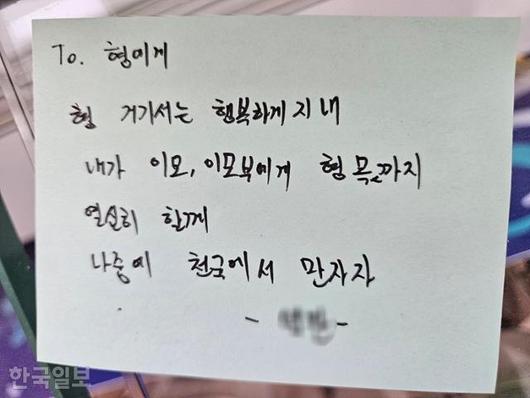 To. 형에게
형 거기서는 행복하게 지내
내가 이모, 이모부에게 형 몫까지
열심히 할께
나중에 천국에서 만나자
한국일보